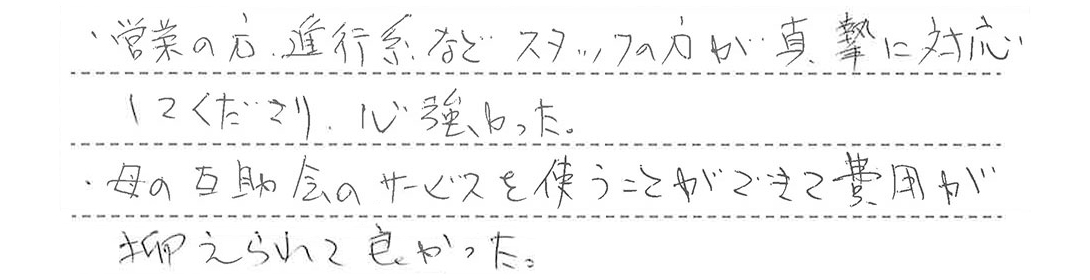 ・営業の方、進行係などスタッフの方が真摯に対応
してくださり、心強かった。
・母の互助会のサービスを使うことができて費用が
抑えられて良かった。